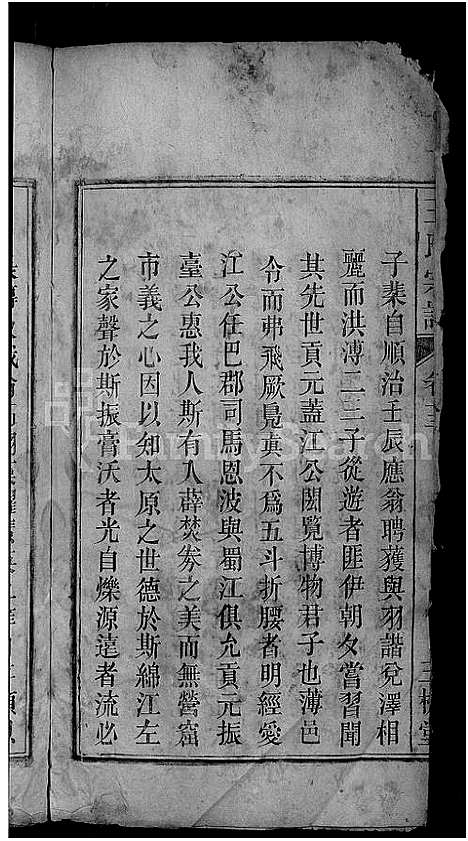 子桒自順治壬辰應翁聘獲與羽諧兌澤相
麗而洪溥二三子從遊者匪伊朝夕嘗習聞
其先世貢元蓋江公閎覽博物君子也薄邑
令而弗飛厥舄真不爲五斗折腰者明經愛
江公任巴郡司馬恩波與蜀江俱允貢元振
臺公惠我人斯有入薜焚券之美而無營窟
市義之心因以知太原之世德於斯綿江左
之家聲於斯振膏沃者光自爍源遠者流必
王氏宗譜
三槐堂
FamilySearch